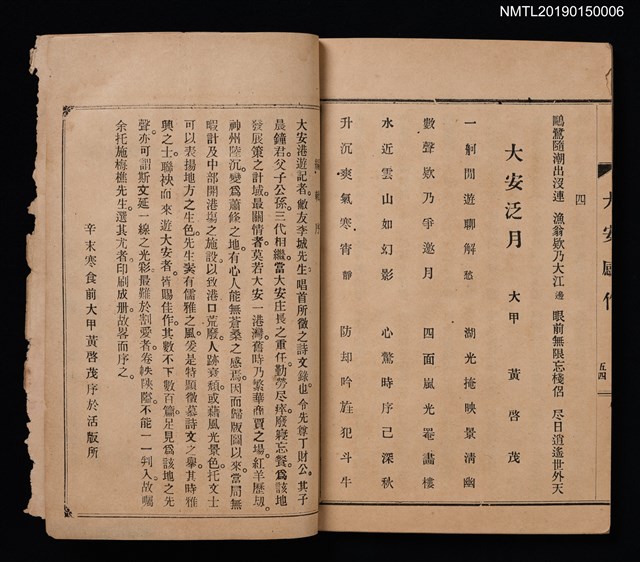 NMTL20190150006
大安感作
五四
鷗鷺隨潮出沒連 漁翁欸乃大江邊 眼前無限忘棧侶 尽日逍遙世外天
四
大安泛月
大甲 黃啓茂
一舸閒遊聊解愁 湖光掩映景清幽
數聲欸乃爭邀月 四面嵐光罨畵樓
水近雲山如幻影 心驚時序已深秋
升沉爽氣寒宵靜 防却吟旌犯斗牛
大安港遊記者。敝友李城先生。唱首所徵之詩文錄也。令先尊丁財公。其子
晨鐘君。父子公孫。三代相繼。當大安庄長之重任。勤勞尽瘁。廢寢忘餐。爲該地
發展策之計。域最關情者。莫若大安一港灣。舊時乃繁華商賈之塲。紅羊歷刼。
神州陸沉。變爲蕭條之地。有心人能無蒼桑之感焉。因而歸版圖以來。當局無
暇計及中部開港塲之施設。以致港口荒廢。人跡衰頽。或藉風光景色。托文士
可以表揚地方之生色。先生褱有儒雅之風。爰是特顯徵募詩文之舉。其時雅
興之士。聯袂而來遊大安者。皆賜佳作。其數不下數百篇。足見爲該地之先
聲。亦可謂斯文延一線之光彩。最難於割愛者。卷帙陝隘。不能一一刋入。故囑
余托施梅樵先生。選其尤者。印刷成册。故畧而序之。
辛未寒食前大甲黃啓茂序於活版所